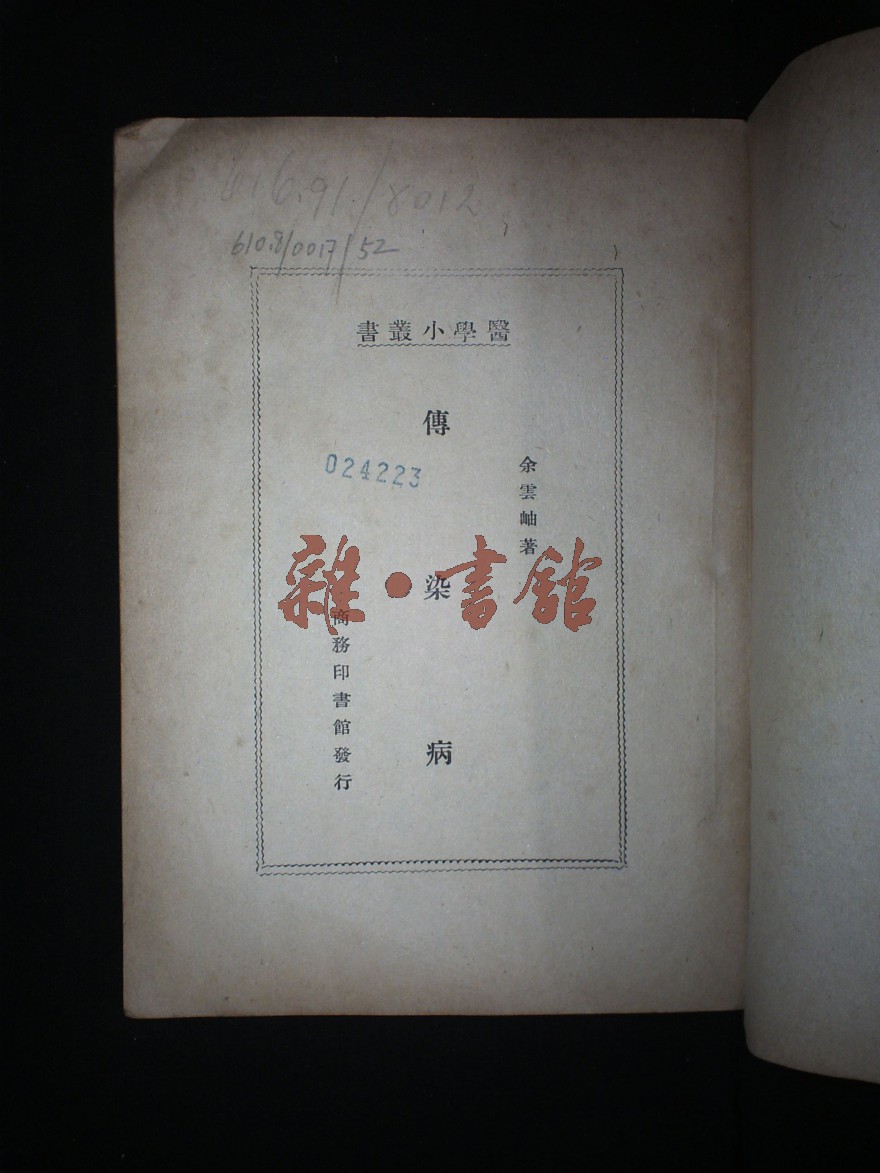 616.91/8012
610.8/0017/52
醫學小叢書
余雲岫著
傳染病
024223
商務印書館發行
雜·書館